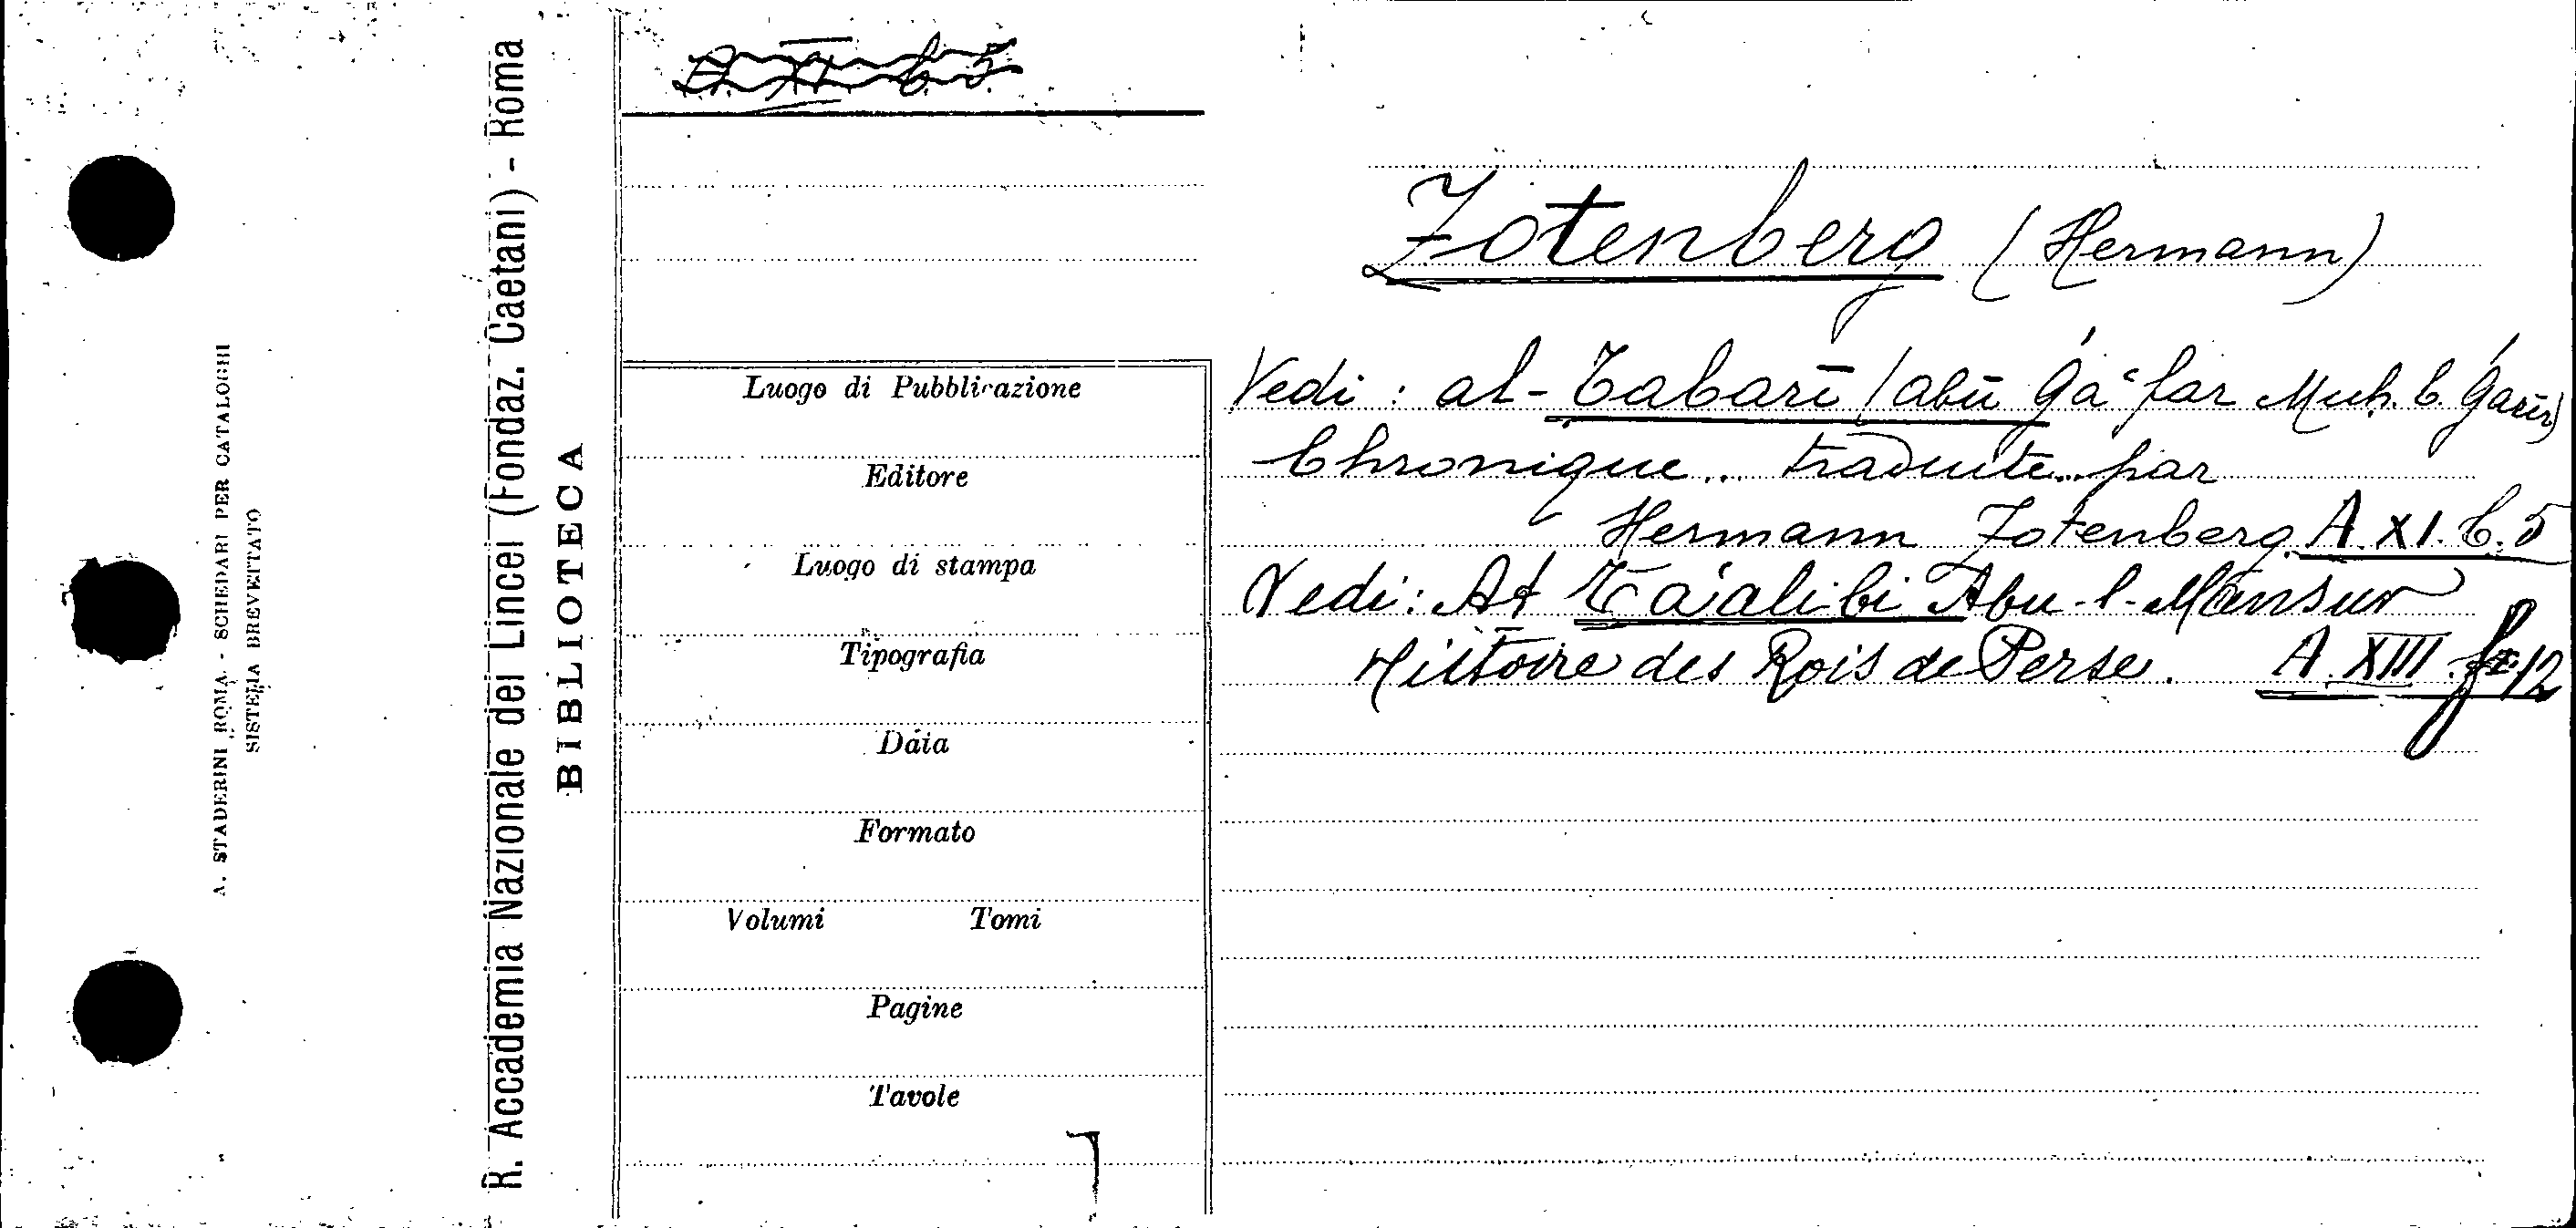 A. STADERINI ROMA - SCHEDARI PER CATALOGHI
SISTEMA BREVETTATO
R. Accademia Nazionale dei Lincei (Fondaz. Caetani) - Roma
BIBLIOTECA
A. XI. b. 5.
Luogo di Pubblicazione
Editore
Luogo di stampa
Tipografia
Data
Formato
Volumi Tomi
Pagine
Tavole
Zotenberg (Hermann)
Vedi : al-Tabarī (abū Ǵaʿfar Muh. b. Ǵarīr)
Chronique... traduite... par
Hermann Zotenberg A. XI. b. 5
Vedi: At Ta'alibi Abu-l-Mansur
Histoire des Rois de Perse. A. XIII 12